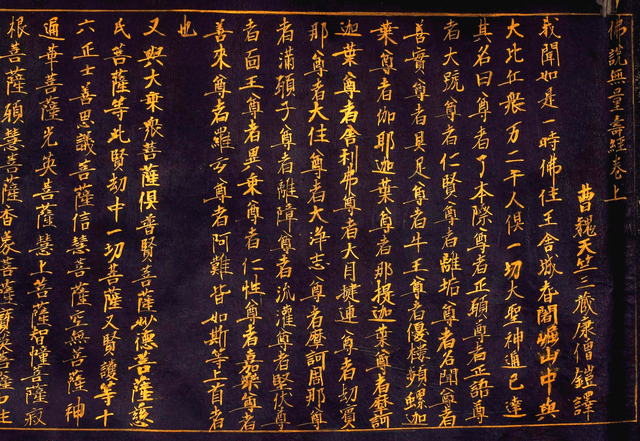 佛説無量壽經卷上
曹魏天竺三藏康僧鎧譯
我聞如是一時佛住王舍城耆闍崛山中與
大比丘衆万二千人俱一切大聖神通已達
其名曰尊者了本際尊者正願尊者正語尊
者大號尊者仁賢尊者離垢尊者名聞尊者
善實尊者具足尊者牛王尊者優樓頻螺迦
葉尊者伽耶迦葉尊者那提迦葉尊者摩訶
迦葉尊者舍利弗尊者大目揵連尊者劫賓
那尊者大住尊者大淨志尊者摩訶周那尊
者滿願子尊者離障尊者流灌尊者堅伏尊
者面王尊者異乘尊者仁性尊者嘉樂尊者
善來尊者羅云尊者阿難皆如斯等上首者
也
又與大乘衆菩薩俱普賢菩薩妙德菩薩慈
氏菩薩等此賢劫中一切菩薩又賢護等十
六正士善思議菩薩信慧菩薩空無菩薩神
通華菩薩光英菩薩慧上菩薩智幢菩薩寂
根菩薩願慧菩薩香象菩薩寶英菩薩中住